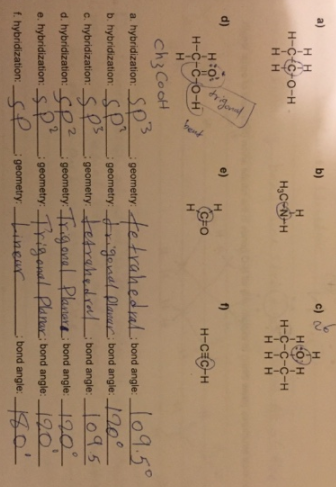 a)
H H
H-C-C-O-H
H H
b)
H
H₃C-N-H
c)
H :O: H
H-C-C-C-H
H H H
d)
H :O:
H-C-C-O-H
H
trigonal
CH3COOH
e)
H
C=O
H
f)
H-C≡C-H
a. hybridization: sp³ ; geometry: tetrahedral ; bond angle: 109.5°
b. hybridization: sp² ; geometry: trigonal planar ; bond angle: 120°
c. hybridization: sp³ ; geometry: tetrahedral ; bond angle: 109.5
d. hybridization: sp² ; geometry: Trigonal Planar ; bond angle: 120°
e. hybridization: sp² ; geometry: Trigonal Planar ; bond angle: 120°
f. hybridization: sp ; geometry: Linear ; bond angle: 180°